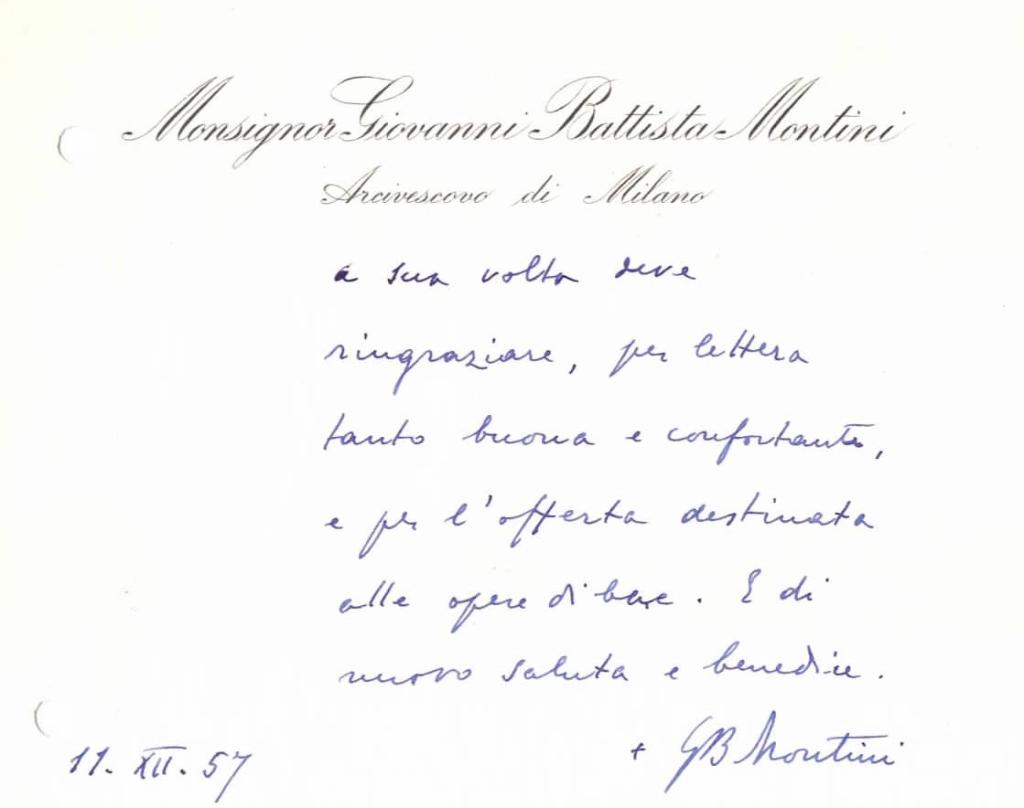 Monsignor Giovanni Battista Montini
Arcivescovo di Milano
a sua volta deve
ringraziare, per lettera
tanto buona e confortante,
e per l'offerta destinata
alle opere di bene. E di
nuovo saluta e benedice.
11. XII. 57
+ GB Montini